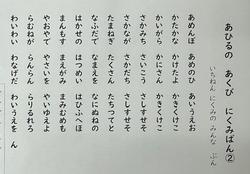 あひるの あくび にくみばん②
いちねん にくみの みんな ぶん
あめんぼ あめのひ あいうえお
かたかな かけたよ かきくけこ
かいがら かにさん かきくけこ
さかみち さいこう さしすせそ
さかなが さしすせそ
たまねぎ たくさん たちつてと
なふだで なまえを なにぬねの
はかせの はつめい はひふへほ
まんもす まえがみ まみむめも
やおやで やさいを やいゆえよ
らむねが らんらん らりるれろ
わいわい わなげだ わいうえを ん